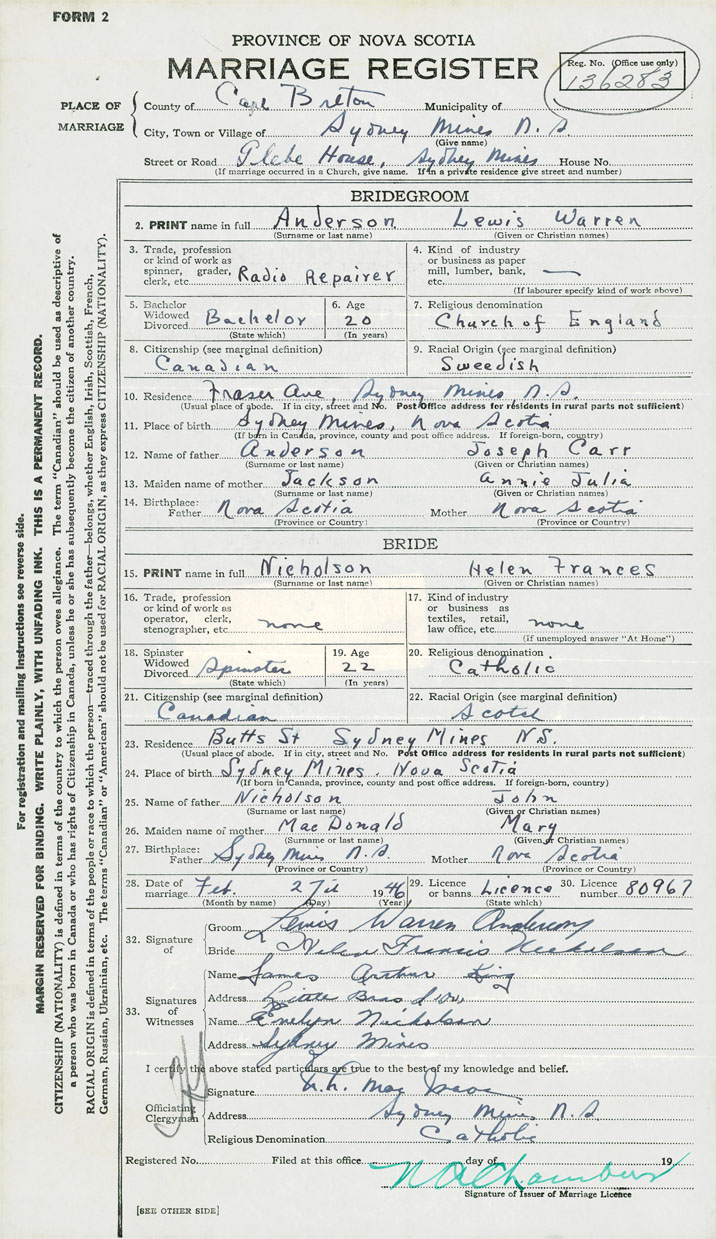 FORM 2
PROVINCE OF NOVA SCOTIA
MARRIAGE REGISTER
Reg. No. (Office use only)
136283
PLACE OF MARRIAGE
County of Cape Breton Municipality of
City, Town or Village of Sydney Mines N.S.
(Give name)
Street or Road Glebe House, Sydney Mines House No.
(If marriage occurred in a Church, give name. If in a private residence give street and number)
BRIDEGROOM
2. PRINT name in full Anderson Lewis Warren
(Surname or last name) (Given or Christian names)
3. Trade, profession or kind of work as spinner, grader, clerk, etc. Radio Repairer
4. Kind of industry or business as paper mill, lumber, bank, etc. —
(If labourer specify kind of work above)
5. Bachelor Widowed Divorced Bachelor
(State which)
6. Age 20
(In years)
7. Religious denomination
Church of England
8. Citizenship (see marginal definition)
Canadian
9. Racial Origin (see marginal definition)
Sweedish
10. Residence Fraser Ave, Sydney Mines, N.S.
(Usual place of abode. If in city, street and No. Post Office address for residents in rural parts not sufficient)
11. Place of birth Sydney Mines, Nova Scotia
(If born in Canada, province, county and post office address. If foreign-born, country)
12. Name of father Anderson Joseph Carr
(Surname or last name) (Given or Christian names)
13. Maiden name of mother Jackson Annie Julia
(Surname or last name) (Given or Christian names)
14. Birthplace: Father Nova Scotia Mother Nova Scotia
(Province or Country) (Province or Country)
BRIDE
15. PRINT name in full Nicholson Helen Frances
(Surname or last name) (Given or Christian names)
16. Trade, profession or kind of work as operator, clerk, stenographer, etc. none
17. Kind of industry or business as textiles, retail, law office, etc. none
(If unemployed answer "At Home")
18. Spinster Widowed Divorced Spinster
(State which)
19. Age 22
(In years)
20. Religious denomination
Catholic
21. Citizenship (see marginal definition)
Canadian
22. Racial Origin (see marginal definition)
Scotch
23. Residence Butts St Sydney Mines N.S.
(Usual place of abode. If in city, street and No. Post Office address for residents in rural parts not sufficient)
24. Place of birth Sydney Mines. Nova Scotia
(If born in Canada, province, county and post office address. If foreign-born, country)
25. Name of father Nicholson John
(Surname or last name) (Given or Christian names)
26. Maiden name of mother MacDonald Mary
(Surname or last name) (Given or Christian names)
27. Birthplace: Father Sydney Mines N.S. Mother Nova Scotia
(Province or Country) (Province or Country)
28. Date of marriage Feb. 1946
(Month by name) (Day) (Year)
29. Licence or banns Licence
(State which)
30. Licence number 80967
32. Signature of
Groom Lewis Warren Anderson
Bride Helen Francis Nicholson
33. Signatures of Witnesses
Name James Arthur King
Address Little Bras d'Or
Name Evelyn Nicholson
Address Sydney Mines
I certify the above stated particulars are true to the best of my knowledge and belief.
Officiating Clergyman
Signature Mac Isaac
Address Sydney Mines N.S
Religious Denomination Catholic
Registered No. Filed at this office day of 19
Chambers
Signature of Issuer of Marriage Licence
[SEE OTHER SIDE]
For registration and mailing instructions see reverse side.
MARGIN RESERVED FOR BINDING. WRITE PLAINLY, WITH UNFADING INK. THIS IS A PERMANENT RECORD.
CITIZENSHIP (NATIONALITY) is defined in terms of the country to which the person owes allegiance. The term "Canadian" should be used as descriptive of
a person who was born in Canada or who has rights of Citizenship in Canada, unless he or she has subsequently become the citizen of another country.
RACIAL ORIGIN is defined in terms of the people or race to which the person—traced through the father—belongs, whether English, Irish, Scottish, French,
German, Russian, Ukrainian, etc. The terms "Canadian" or "American" should not be used for RACIAL ORIGIN, as they express CITIZENSHIP (NATIONALITY).